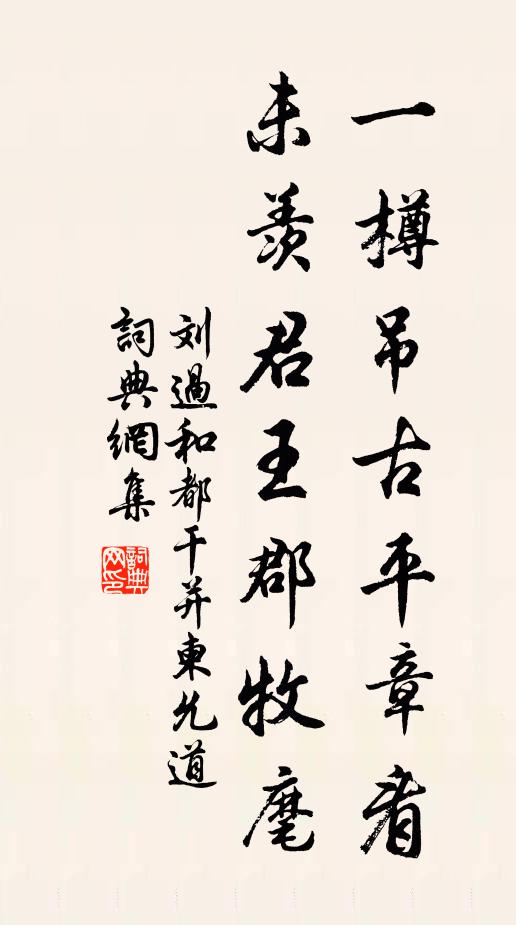 一樽吊古平章看
未羨君王郡牧麾
刘過和都干并東允道
詞典網集
詞典网印